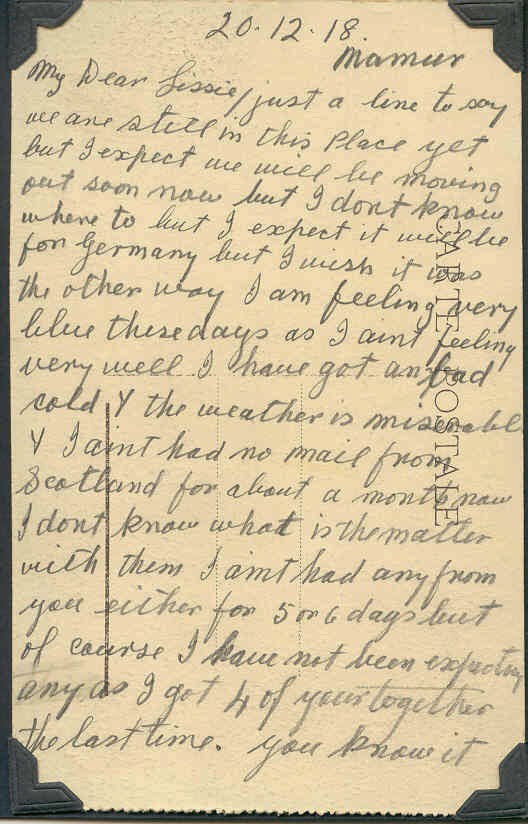 20.12.18.
Mamur
My Dear Lissie, just a line to say
we are still in this Place yet
but I expect we will be moving
out soon now but I dont know
where to but I expect it will be
for Germany but I wish it was
the other way I am feeling very
blue these days as I aint feeling
very well I have got an bad
cold & the weather is miserable
& I aint had no mail from
Scotland for about a month now
I dont know what is the matter
with them I aint had any from
you either for 5 or 6 days but
of course I have not been expecting
any as I got 4 of your together
the last time. you know it
CARTE POSTALE